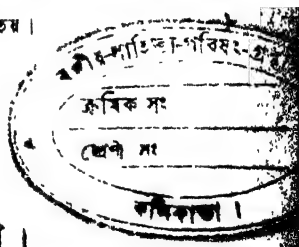 বঙ্গীয়-সাহিত্য-পরিষৎ-গ্র
ক্রমিক সং
শ্রেণী সং
কলিকাতা ।